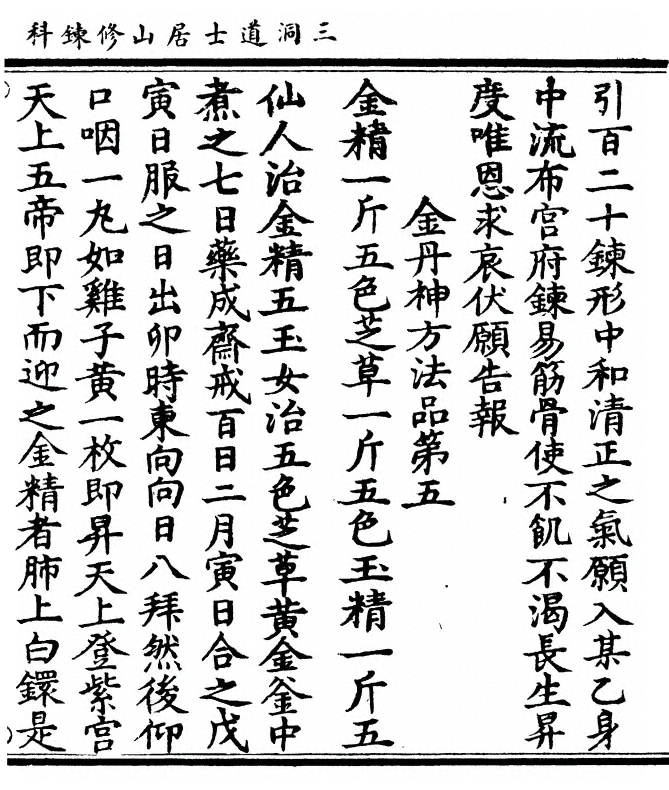 三洞道士居山修鍊科
引百二十鍊形中和清正之氣願入某乙身
中流布宫府鍊易筋骨使不飢不渴長生昇
度唯恩求哀伏願告報
金丹神方法品第五
金精一斤五色芝草一斤五色玉精一斤五
仙人治金精五玉女治五色芝草黄金釜中
煮之七日藥成齋戒百日二月寅日合之戊
寅日服之日出卯時東向向日八拜然後仰
口咽一丸如雞子黄一枚即昇天上登紫宫
天上五帝即下而迎之金精者肺上白鐶是